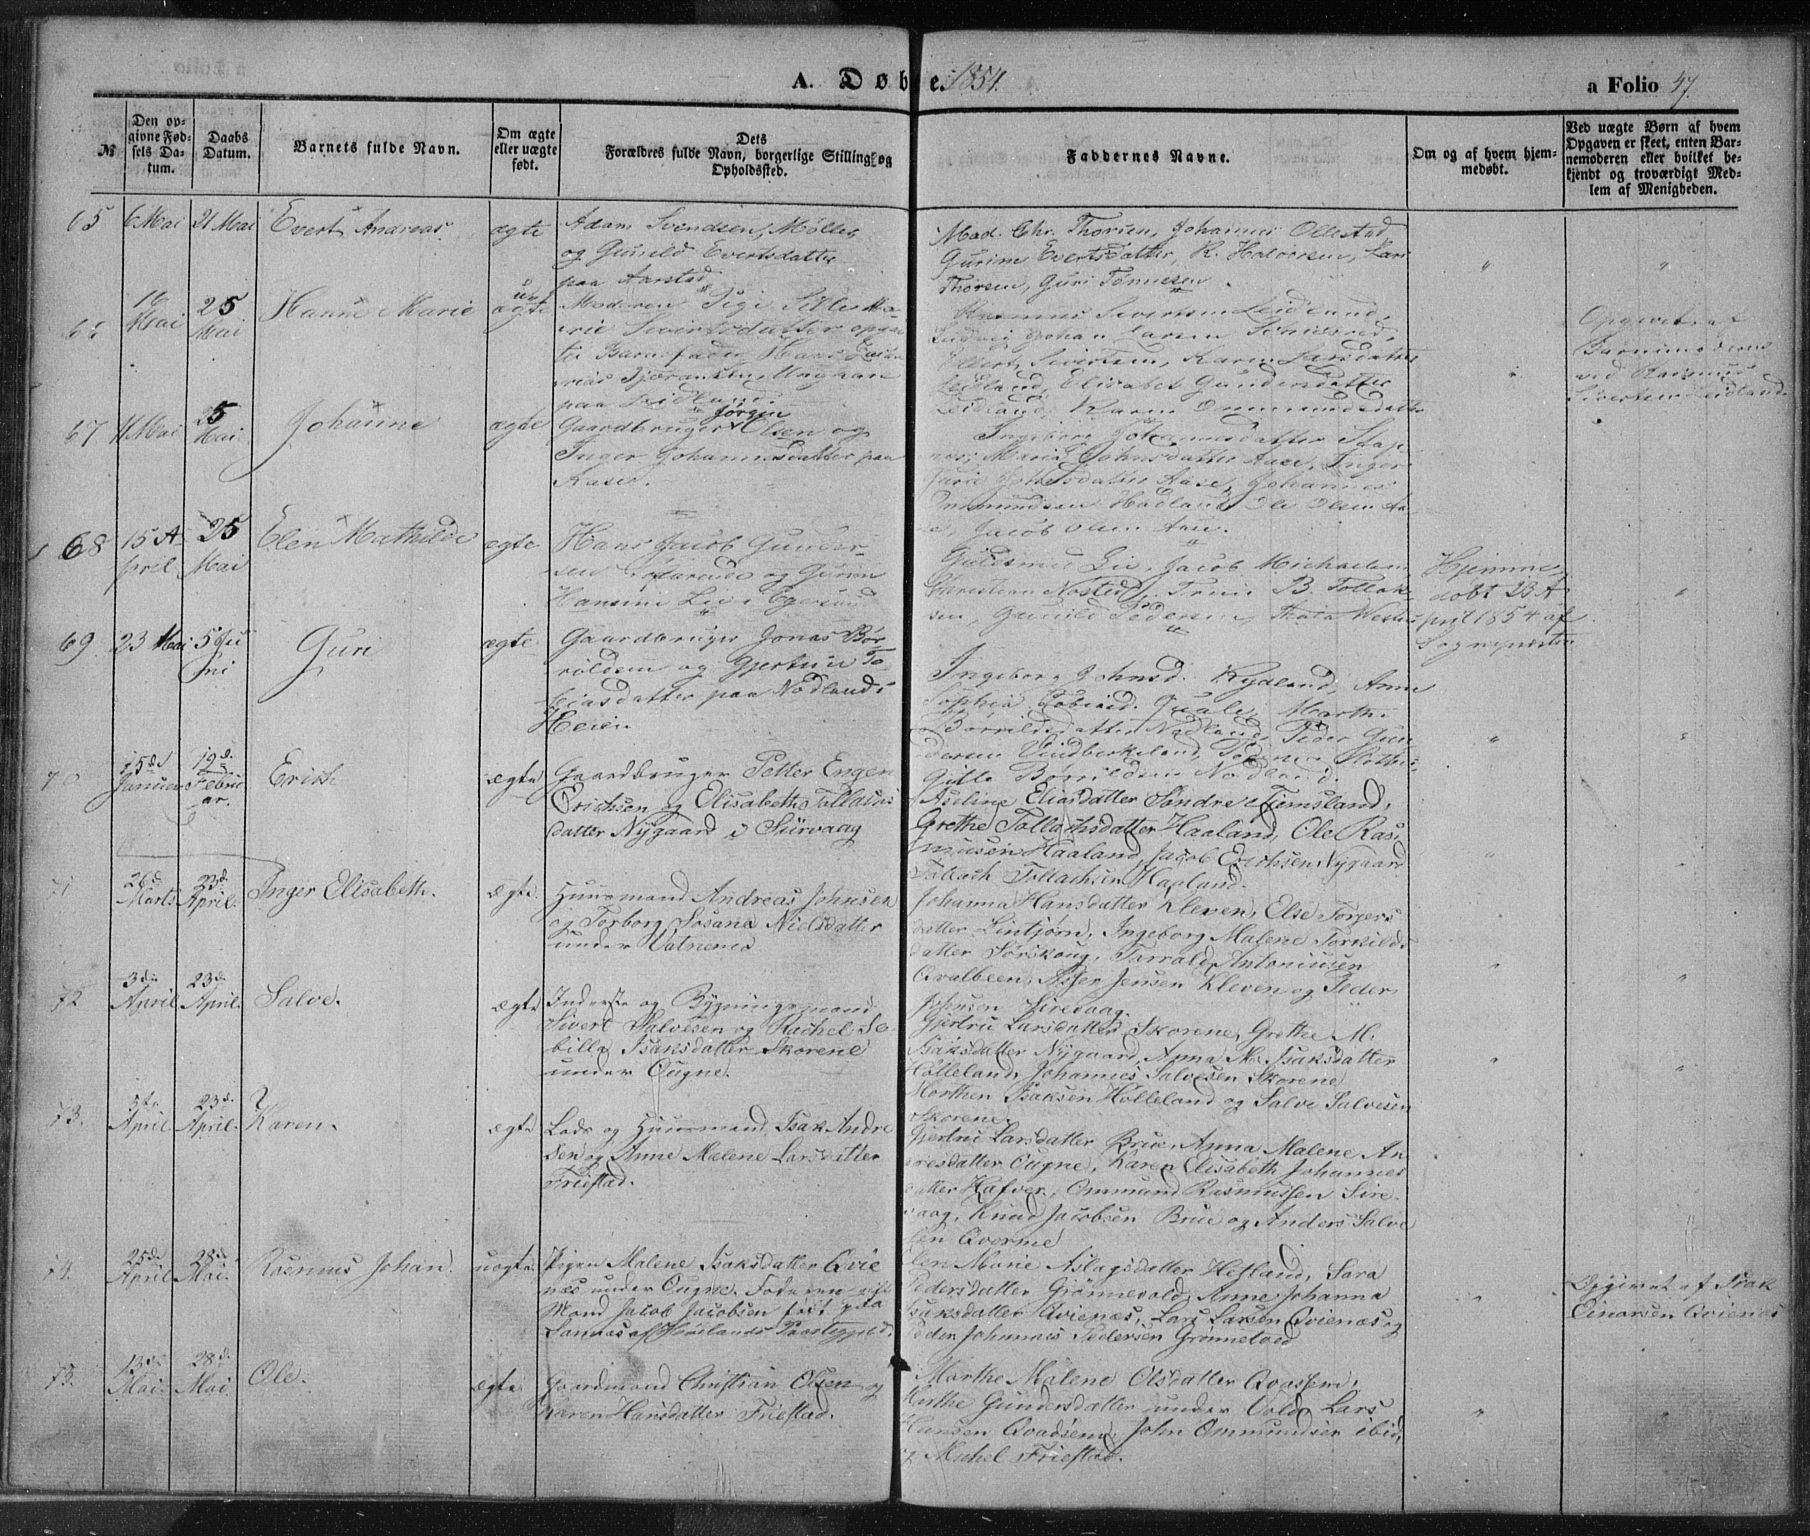 A. Døbte. 1854.
a Folio 47.
№
Den op-
givne Fød-
sels Da-
tum.
Daabs
Datum.
Barnets fulde Navn.
Om ægte
eller uægte
født.
Dets
Forældres fulde Navn, borgerlige Stilling og
Opholdssted.
Faddernes Navne.
Om og af hvem hjem-
medøbt.
Ved uægte Børn af hvem
Opgaven er skeet, enten Bar-
nemoderen eller hvilket be-
kjendt og troværdigt Med-
lem af Menigheden.
65 6 Mai 21 Mai Evert Andreas ægte
Adam Svendsen, Møller
og Gunild Evertsdatter
paa Aarstad
Mad. Chr. Thorsen, Johannes Ollestad
Gurine Evertsdatter, R. Halvorsen, Lars
Thorsen, Guri Tønnesen.
16 Mai 25 Mai Hanne Marie uægte
Moderen Pige Sille Ma-
rie Sivertsdatter
Barnefader Hans
Ungkarl
paa Leidland.
Rasmus Sivertsen Leidland,
Ludvig Johan Larsen
Ellert Sivertsen, Karen Larsdatter
Leidland, Elisabet Gundersdatter
Leidland, Karen Ommundsdatter
Opgivet af
Barnemoderen
ved Rasmus
Sivertsen Leidland.
67 11 Mai 25 Mai Johanne ægte
Gaardbruger Jørgen Olsen og
Inger Johannesdatter paa
Aase.
Ingeborg Johannesdatter Stap-
nes, Maria Johnsdatter Aase, Inger
Gurie Aase, Johannes
Ommundsen Hadland, Ole Olsen Aa-
se, Jacob Olsen Aase.
68 15 April 25 Mai Elen Mathilde ægte
Hans Jacob Gunder-
sen og Gurine
Hansine Lie i Egersund
Guldsmed Lie, Jacob Michaelsen
Christian Nosted, Trine B. Tollak-
sen, Gunild Pedersen, Thala
Hjemme-
døbt 23 A-
pril 1854 af
Sognepræsten
69 23 Mai 5 Juni Guri ægte
Gaardbruger Jonas Bor-
rildsen og Gjertrine To-
biasdatter paa Nodlands
Heien
Ingeborg Johnsd. Rydland, Anne
Sophia Tobiasd. Quale, Marthe
Borrildsdatter Nodland, Peder Gun-
dersen Lindberkeland,
Gitle Borrildsen Nodland.
70 15de Januar 19de Februar. Erich ægte
Gaardbruger Petter Engen
Erichsen og Elisabeth Tollachs
datter Nygaard i Sirvaag
Aseline Eliasdatter Søndre Tjemsland,
Grethe Tollachsdatter Haaland, Ole Ras-
musen Haaland, Jacob Erichsen Nygaard
Tollach Tollachsen Haaland.
71 26de Marts 23de April. Inger Elisabeth. ægte.
Huusmand Andreas Johnsen
og Torborg Sosana Nielsdatter
under Vatnemo
Johanna Hansdatter Kleven, Else Torgers
datter Lintjørn, Ingeborg Malene Torkilds
datter Sørskoug, Torrald Antoniusen
Qvalbeen, Asser Jensen Kleven og Peder
Johnsen Sirevaag.
72 3die April 23de April. Salve. ægte
Inderste og Bygningsmand
Sivert Salvesen og Rachel Se-
bille Isaksdatter Skorene
under Ougne.
Gjertru Larsdatter Skorene, Grethe M.
Isaksdatter Nygaard, Anna M. Isaksdatter
Hølleland, Johannes Salvesen Skorene
Morthen Isaksen Hølleland og Salve Salvesen
Skorene.
73. 5te April 23de April. Karen. ægte
Lods og Huusmand Isak Andre
sen og Anne Malene Larsdatter
Friestad.
Gjertru Larsdatter Brue, Anna Malene An-
dresdatter Ougne, Karen Elisabeth Johannes
datter Hafver, Ommund Rasmussen Sire-
vaag, Knud Jacobsen Brue og Anders Salve
sen Qvorme
74. 25de April 28de Mai. Rasmus Johan. uægte.
Pigen Malene Isaksdatter Qvie
næs under Ougne. Faderen gift
Mand Jacob Jacobsen født paa
Sannæs af Høilands Præstegjeld.
Elen Marie Aslagsdatter Hetland, Sara
Pedersdatter Grønnevold, Anne Johanna
Isaksdatter Qvienæs, Lars Larsen Qvienæs og
Peder Johannes Pedersen Grønnevold
Opgivet af Isak
Einarsen Qvienæs
75. 13de Mai. 28de Mai. Ole. ægte
Gaardmand Christian Olsen og
Karen Hansdatter Friestad.
Marthe Malene Olsdatter Qvassem,
Marthe Gundersdatter under Vold, Lars
Hansen Qvadsem, John Ommundsen ibid,
og Michel Friestad.